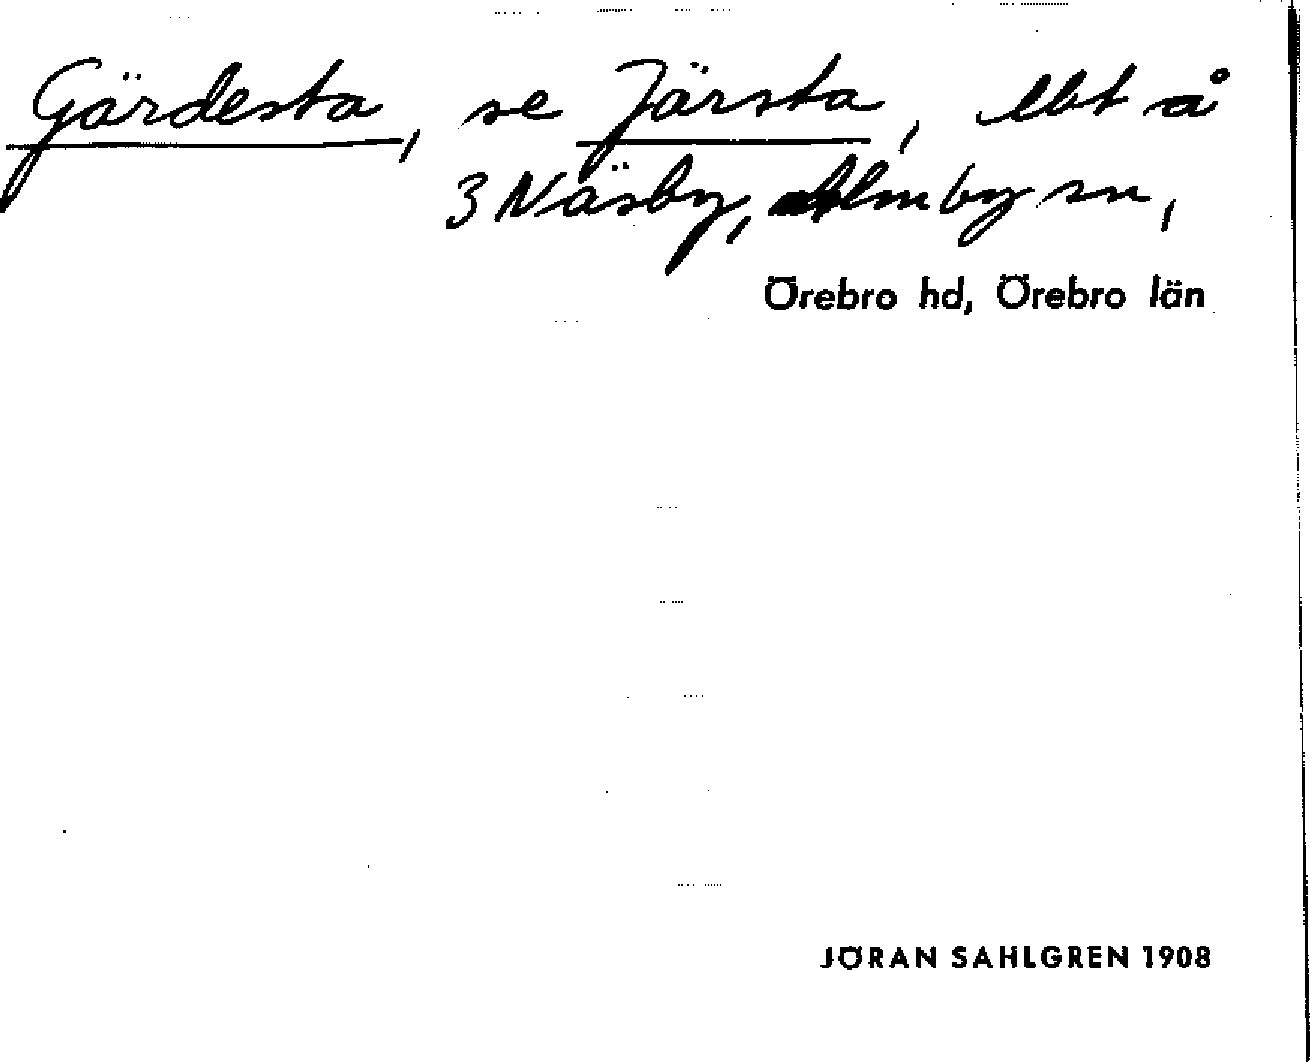 Gärdesta, se Järsta, lbt å
3 Näsby, Almby sn,
Örebro hd, Örebro län
JÖRAN SAHLGREN 1908